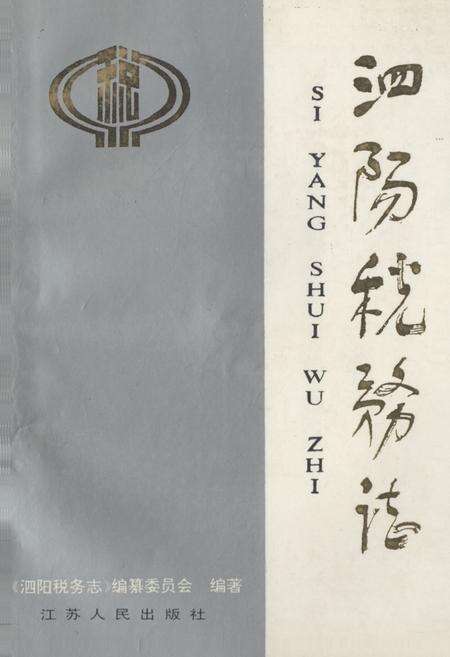 税
泗阳税务志
SI YANG SHUI WU ZHI
《泗阳税务志》编纂委员会 编著
江苏人民出版社